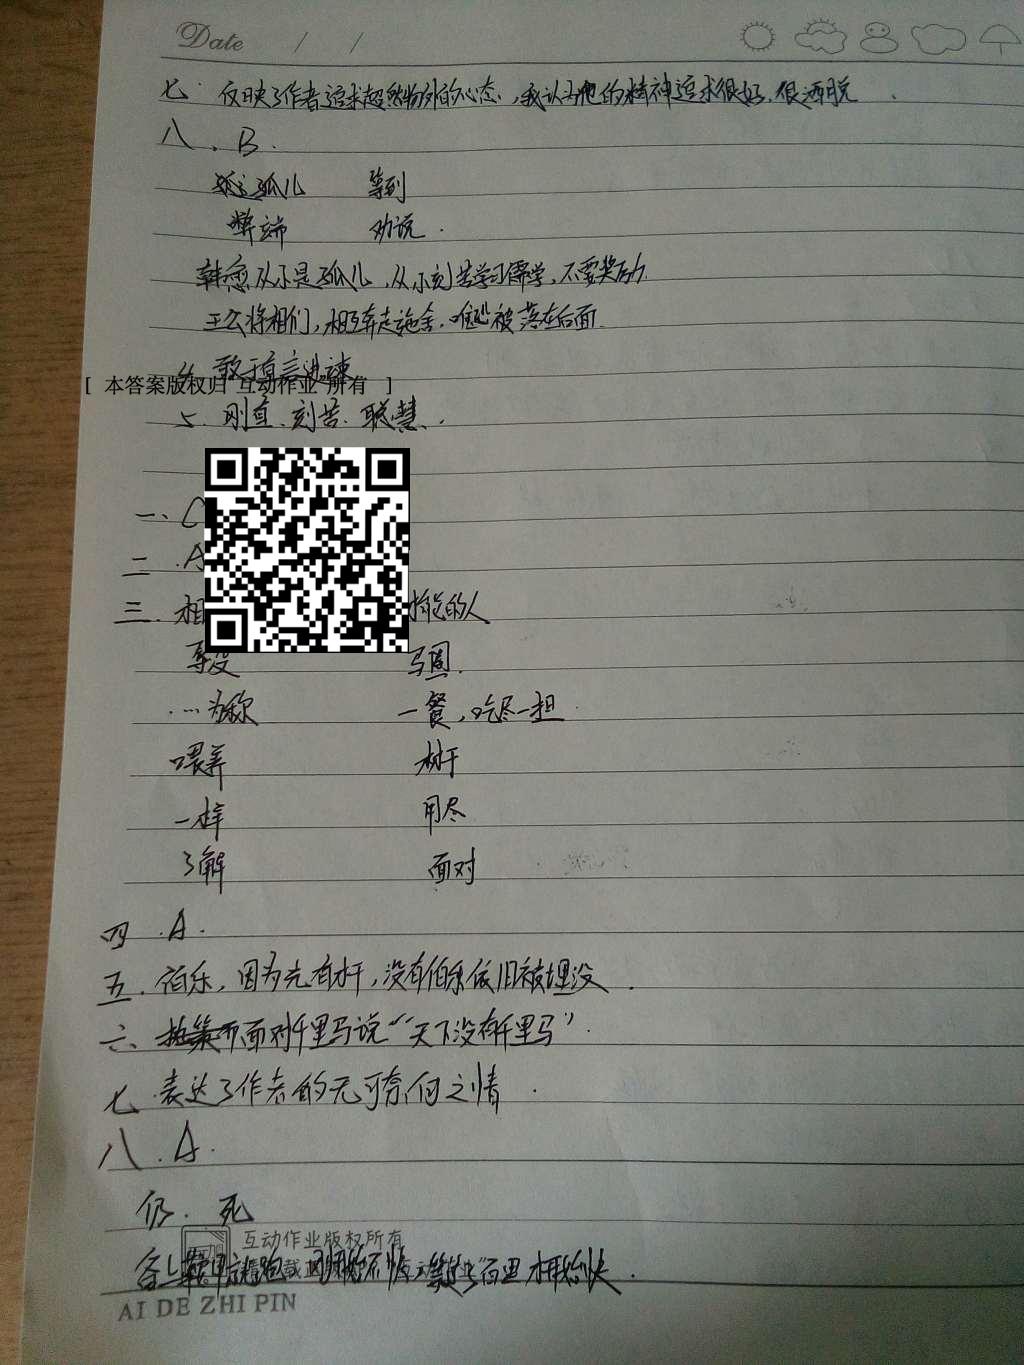 Date / /
七. 反映了作者追求超然物外的心态, 我认为他的精神追求很好, 很洒脱.
八. B.
孤: 孤儿 等到
弊端 劝说.
韩愈从小是孤儿, 从小刻苦学习儒学, 不要奖励
王公将相们, 相互奔走施舍, 唯恐被落在后面.
4. 敢于直言进谏
[ 本答案版权归 互动作业 所有 ]
5. 刚直. 刻苦. 聪慧.
一、C
二.A
三.相 才能的人
马圈.
…为称 一餐, 吃尽一担
喂养 树干
一样 用尽
了解 面对
四.A.
五. 伯乐, 因为先有才, 没有伯乐依旧被埋没.
六. 面对千里马说“天下没有千里马”.
七.表达了作者的无可奈何之情.
八.A.
仍. 死
互动作业版权所有
百里 才开始快.
AI DE ZHI PIN